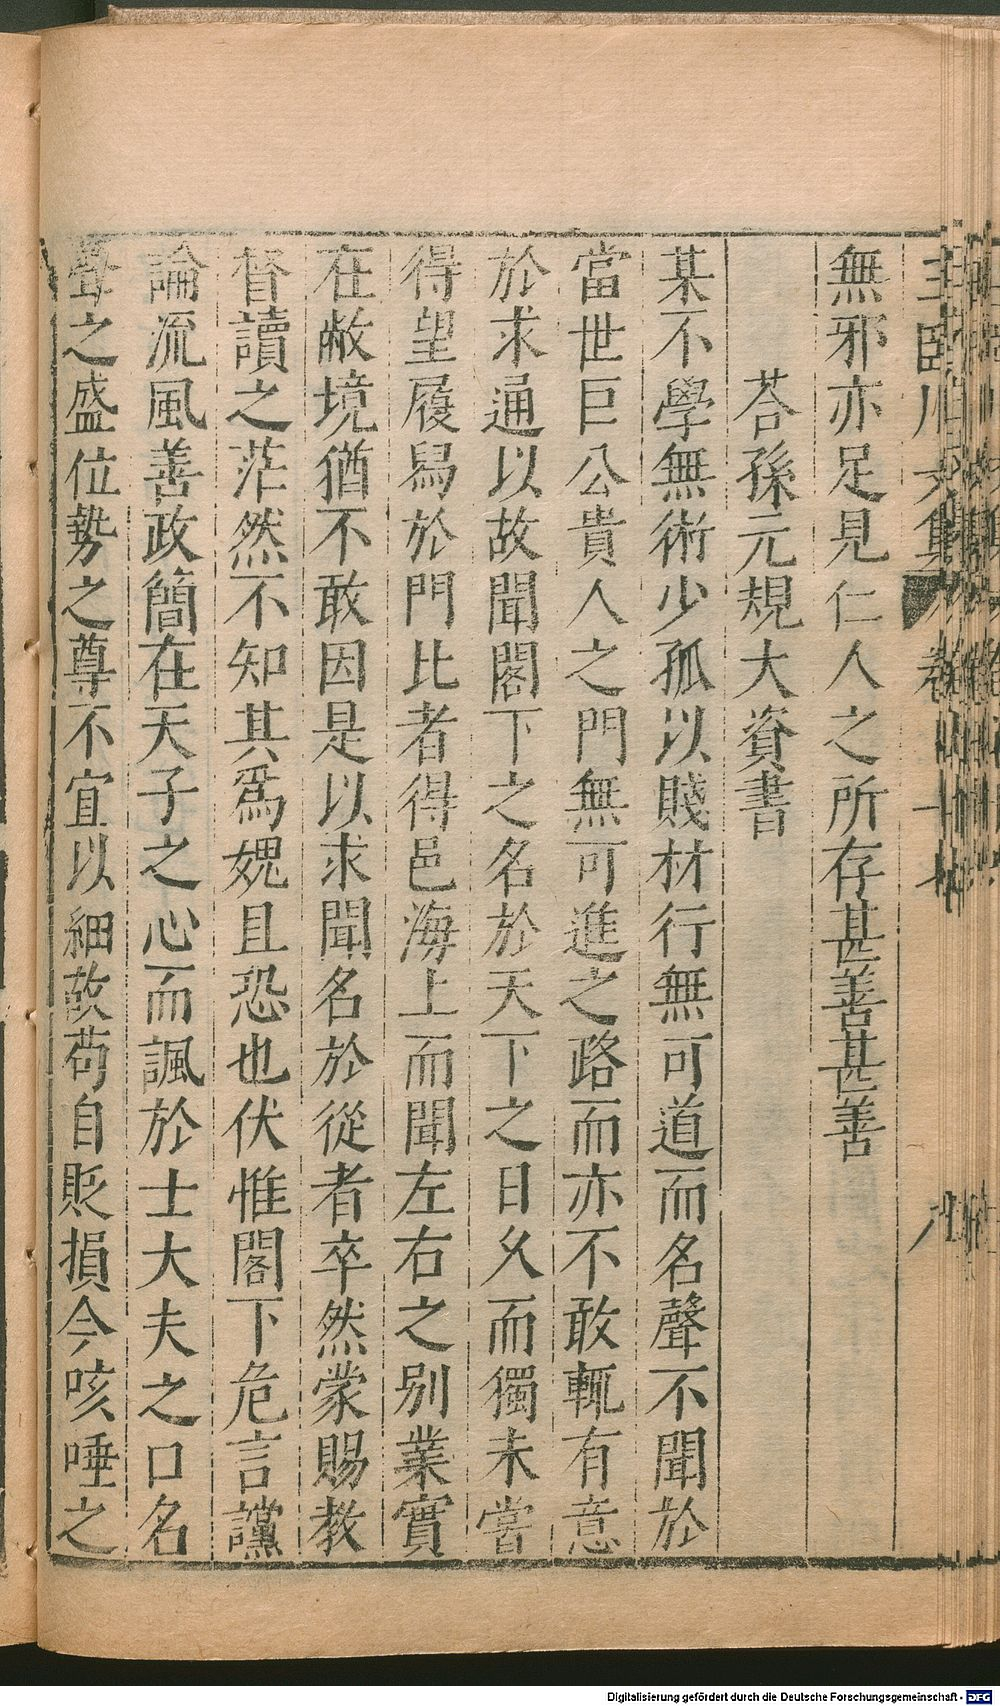 王臨川文集 卷七十七 八
無邪亦足見仁人之所存甚善甚善
荅孫元規大資書
某不學無術少孤以賤材行無可道而名聲不聞於
當世巨公貴人之門無可進之路而亦不敢輒有意
於求通以故聞閣下之名於天下之日久而獨未嘗
得望履舄於門比者得邑海上而聞左右之別業實
在敝境猶不敢因是以求聞名於從者卒然蒙賜教
督讀之茫然不知其爲媿且恐也伏惟閣下危言讜
論流風善政簡在天子之心而諷於士大夫之口名
聲之盛位勢之尊不宜以細故苟自貶損今咳唾之
Digitalisierung gefördert durch die Deutsche Forschungsgemeinschaft - DFG